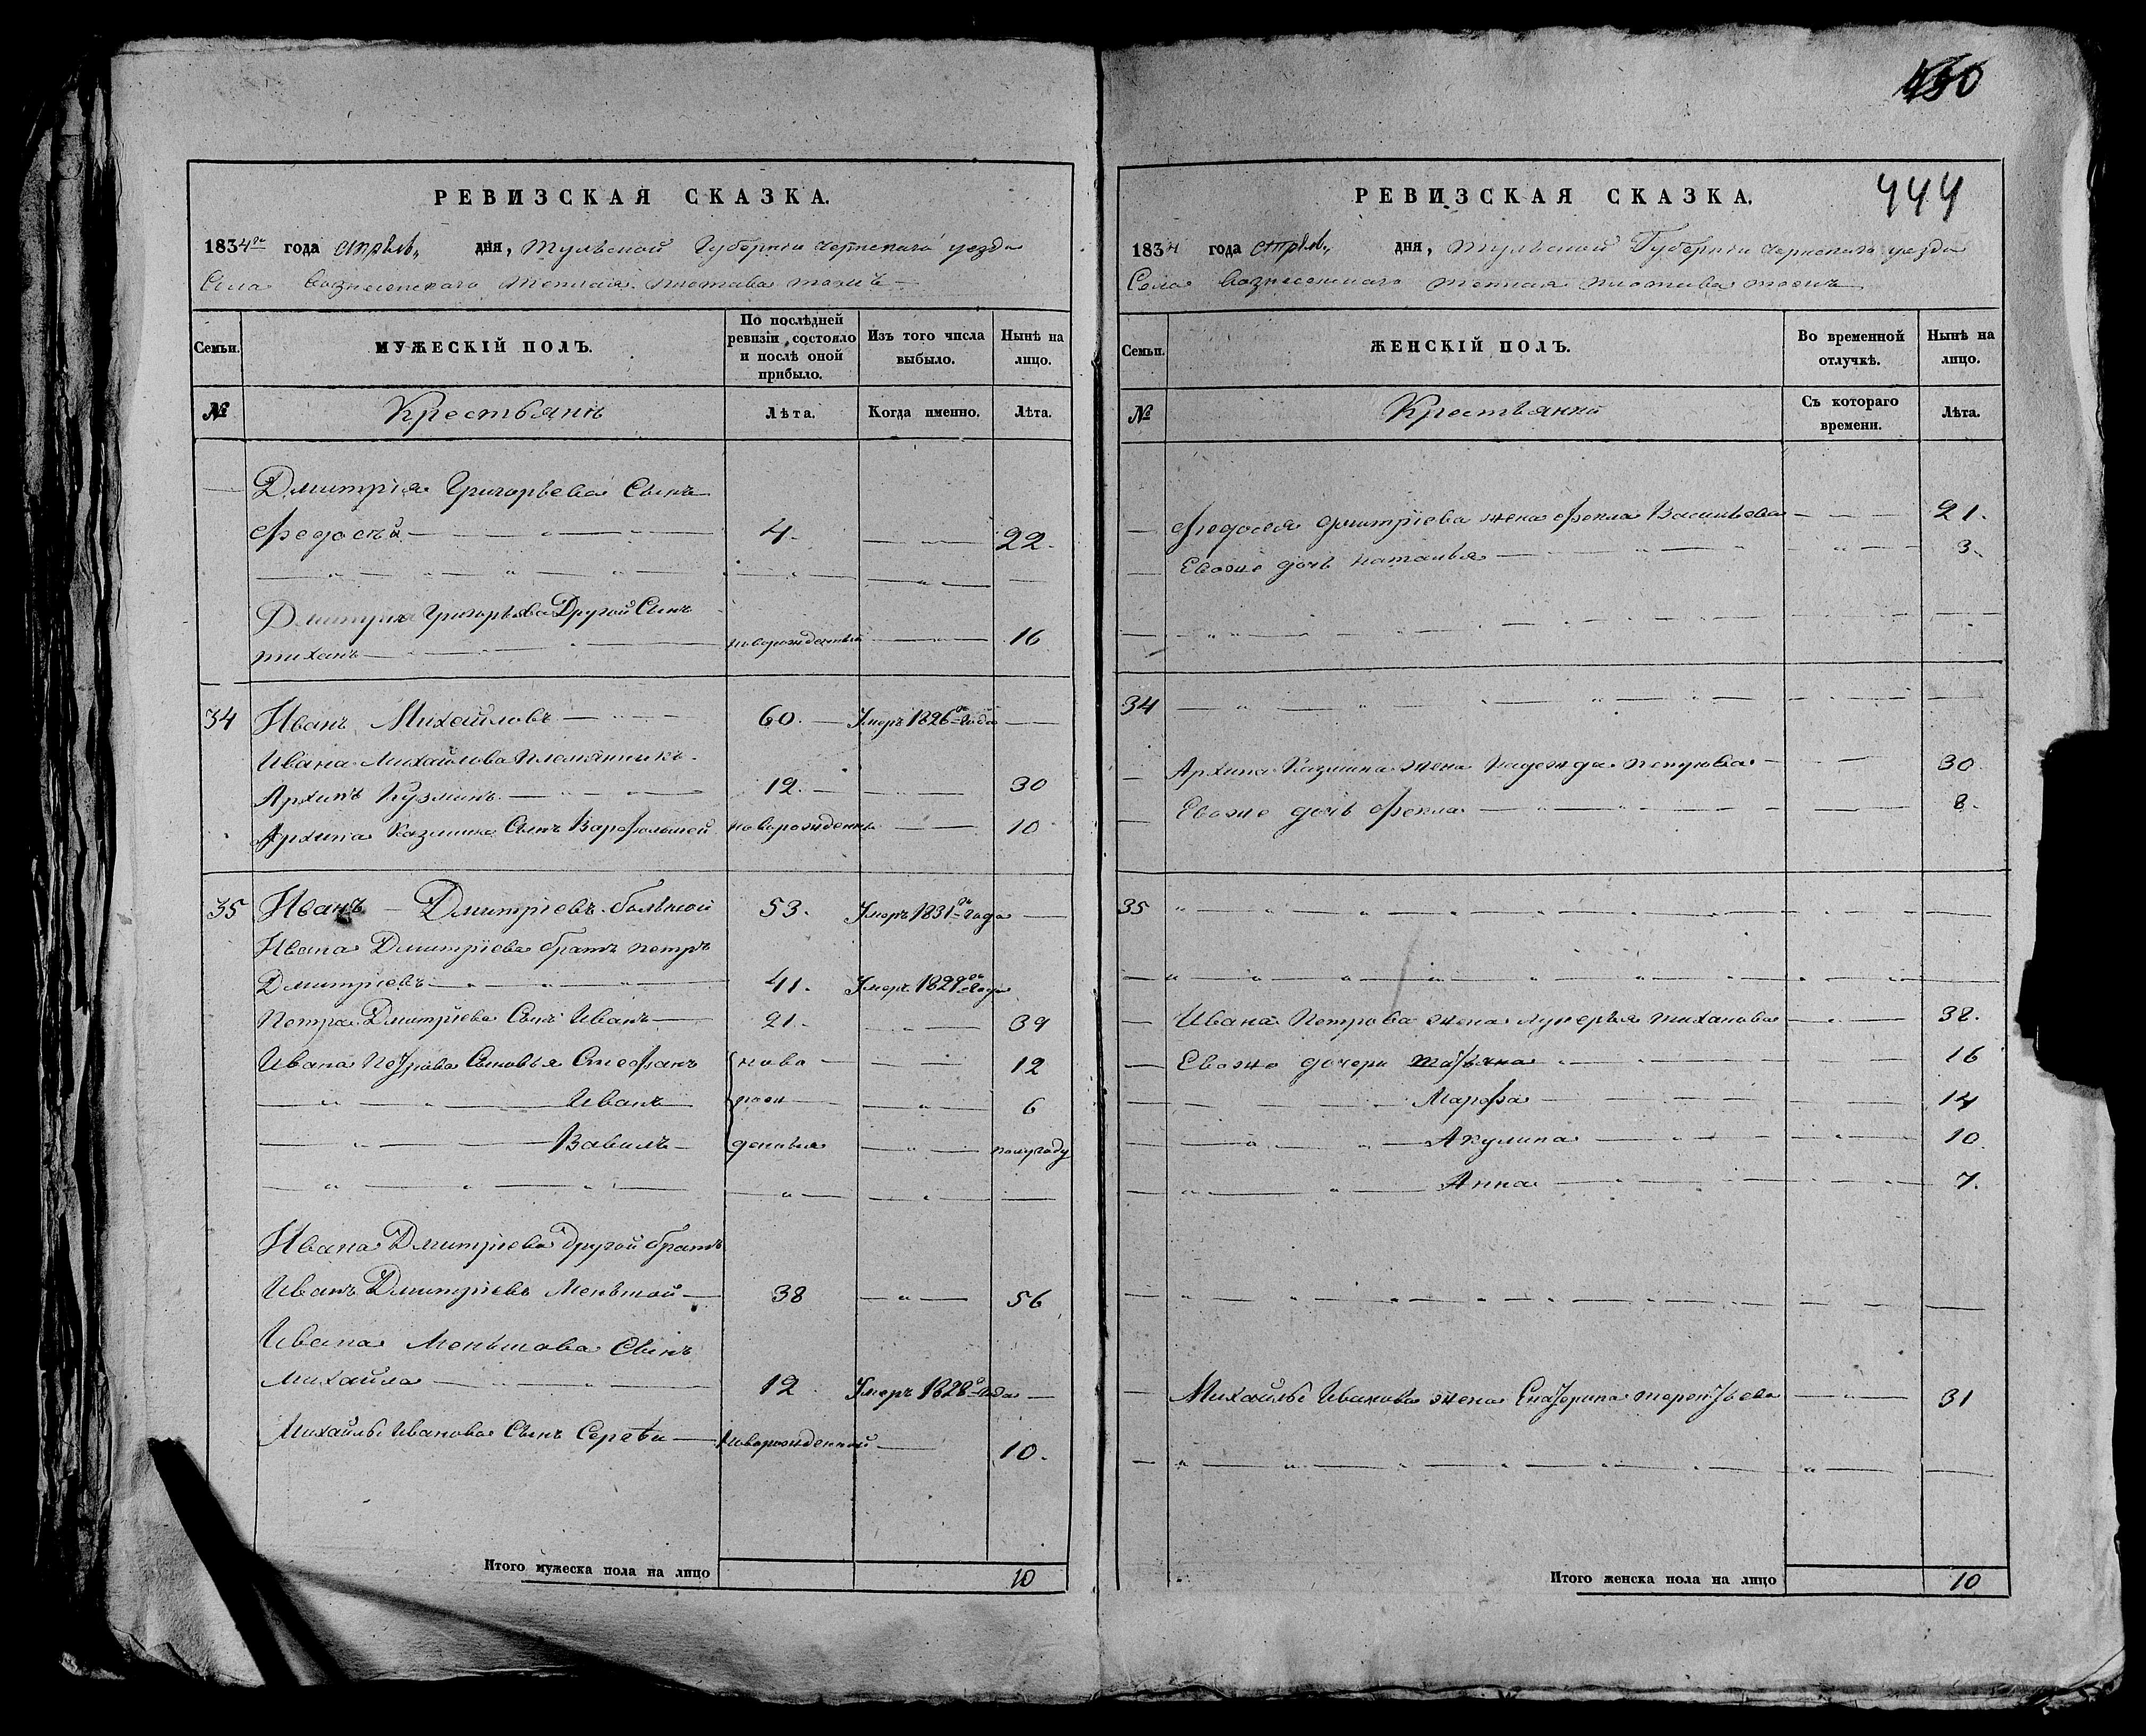 РЕВИЗСКАЯ СКАЗКА.
1834го года Апрѣль дня, Тульской Губерніи Чернскаго уезда
Села Вознесенскаго Теплая тожъ
Семьи. МУЖЕСКІЙ ПОЛЪ. По послѣдней ревизіи состояло и послѣ оной прибыло. Изъ того числа выбыло. Нынѣ на лицо.
№ Крестьянъ Лѣта. Когда именно. Лѣта.
Дмитрія Григорьева Сынъ
Федосѣй 4. 22.
Дмитрія Григорьева Другой Сынъ
тиханъ новорожденный 16
34 Иванъ Михайловъ 60. Умеръ 1826го года
Ивана Михайлова племянникъ
Архипъ Кузминъ 12. 30
Архипа Казмина Сынъ Варфоломей новорожденны 10
35 Иванъ Дмитріевъ большой 53. Умеръ 1831го года
Ивана Дмитріева братъ петръ
Дмитріевъ 41. Умеръ года
Петра Дмитріева Сынъ Иванъ 21. 39
Ивана Петрова Сыновья Стефанъ ново 12
Иванъ рож 6
Вавилъ денныя полугоду
Ивана Дмитріева другой братъ
Иванъ Дмитріевъ Меньшой 38 56
Ивана Меньшова Сынъ
Михайла 12 Умеръ 1828го года
Михайлы Иванова Сынъ Сергѣи новорожденной 10.
Итого мужеска пола на лицо 10
444
РЕВИЗСКАЯ СКАЗКА.
1834 года Апрѣль дня, Тульской Губерніи Чернскаго уезда
Села Вознесенскаго Теплая тожъ
Семьи. ЖЕНСКІЙ ПОЛЪ. Во временной отлучкѣ. Нынѣ на лицо.
№ Крестьянки Съ котораго времени. Лѣта.
Федосея Дмитріева жена Фекла Васильева 21.
Евоже дочь Наталья 3.
34
Архипа Казмина жена Надежда 30
Евоже дочь Фекла 8.
35
Ивана Петрова жена Лукерья Тиханова 38.
Евоже дочери Татьяна 16
Марфа 14
Акулина 10
Анна 7.
Михайлы Иванова жена Екатерина терентьева 31
Итого женска пола на лицо 10